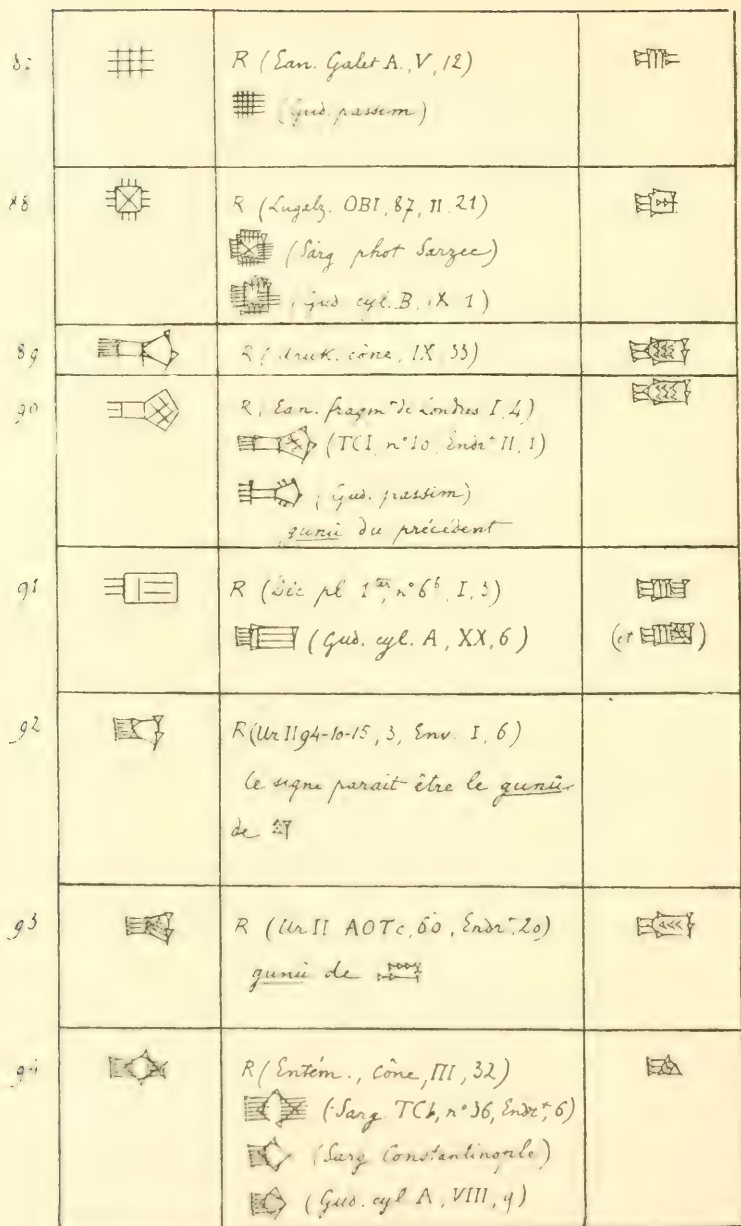 R (Ean. Galet A., V, 12)
(Gud. passim)
88 R (Lugalz. OBI, 87, II. 21)
(Sarg phot Sarzec)
(Gud cyl. B, IX 1)
89 R (Uruk. cône, IX 33)
90 R, Ean. fragm^t de Londres I, 4)
(TCI, n° 10, Endr^t II, 1)
(Gud. passim)
gunû du précédent
91 R (Déc pl 1^ter, n° 6^b, I, 3)
(Gud. cyl. A, XX, 6) (et )
92 R (Ur II 94-10-15, 3, Env. I, 6)
Ce signe parait être le gunû
de
93 R (Ur II AOTc, 60, Endr^t, 20)
gunû de
94 R (Entém., Cône, III, 32)
(Sarg. TCI, n° 36, Endr^t, 6)
(Sarg Constantinople)
(Gud. cyl A, VIII, 9)